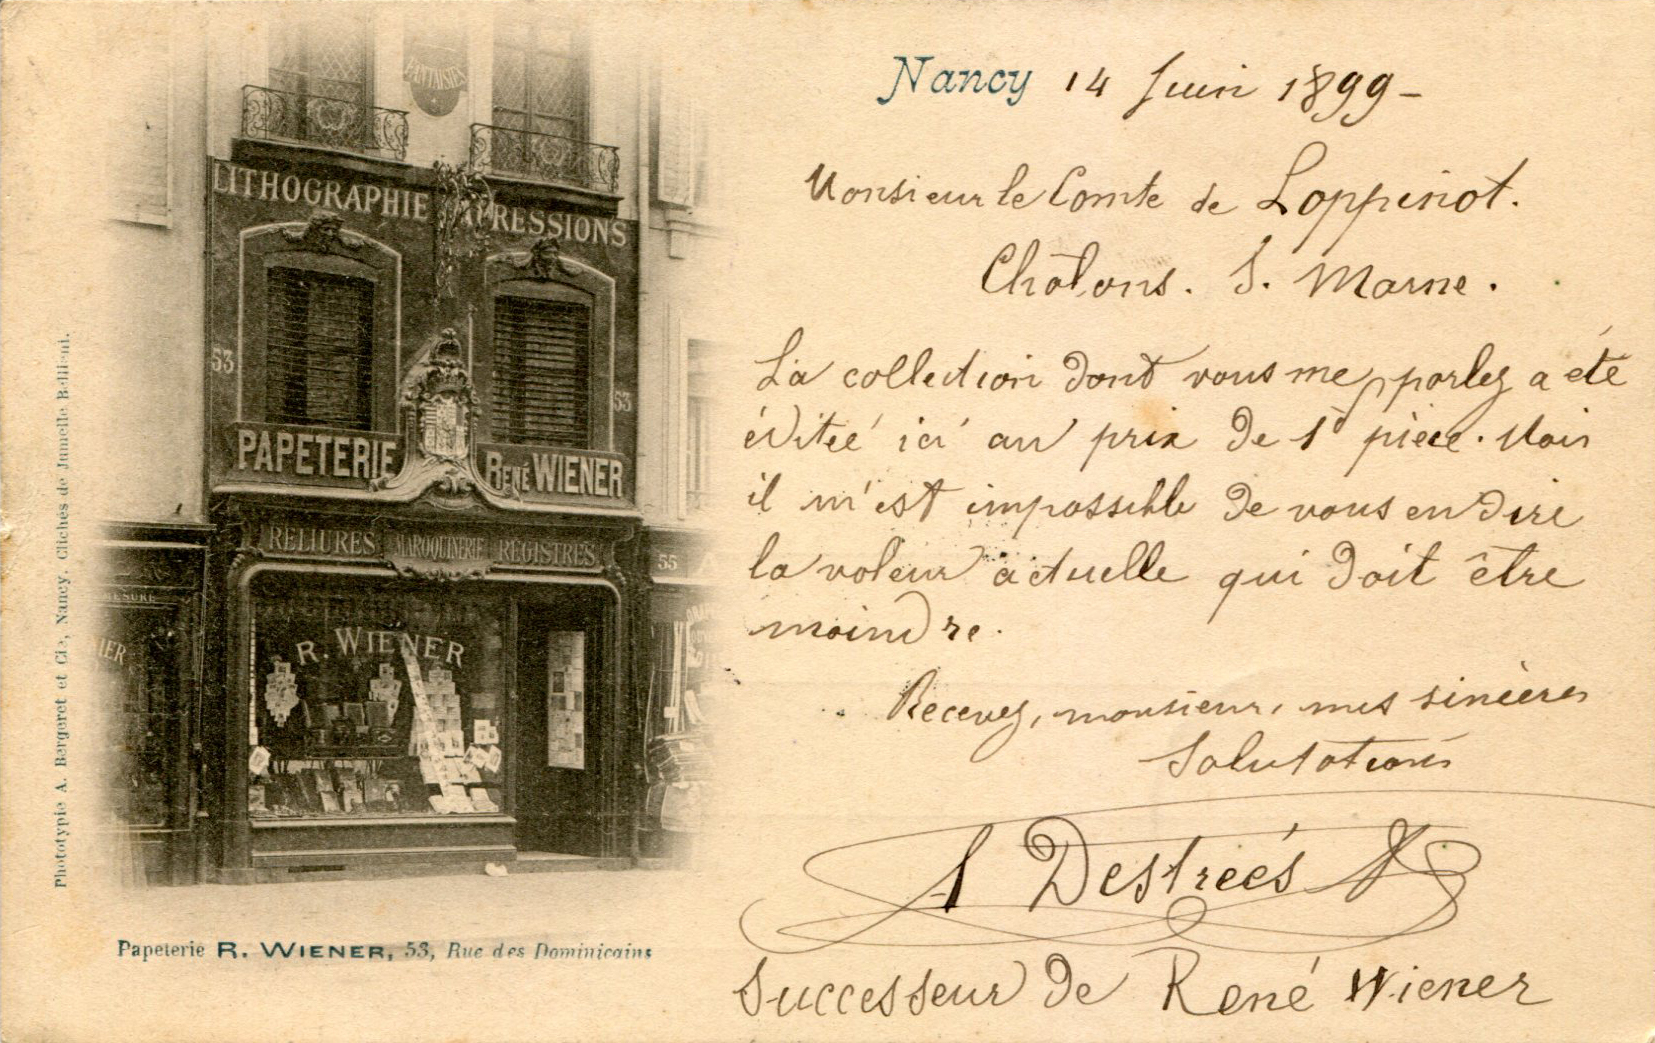 FANTAISIES
LITHOGRAPHIE IMPRESSIONS
53
53
PAPETERIE RENÉ WIENER
RELIURES MAROQUINERIE REGISTRES
55
MESURE
IER
R. WIENER
Phototypie A. Bergeret et Cie, Nancy. Clichés de Jumelle Bellieni.
Papeterie R. WIENER, 53, Rue des Dominicains
Nancy 14 Juin 1899 -
Monsieur le Comte de Loppinot.
Châlons. S. Marne.
La collection dont vous me parlez a été
éditée ici au prix de 1f pièce. Mais
il m'est impossible de vous en dire
la valeur actuelle qui doit être
moindre.
Recevez, monsieur, mes sincères
Salutations
A Destreés
Successeur de René Wiener